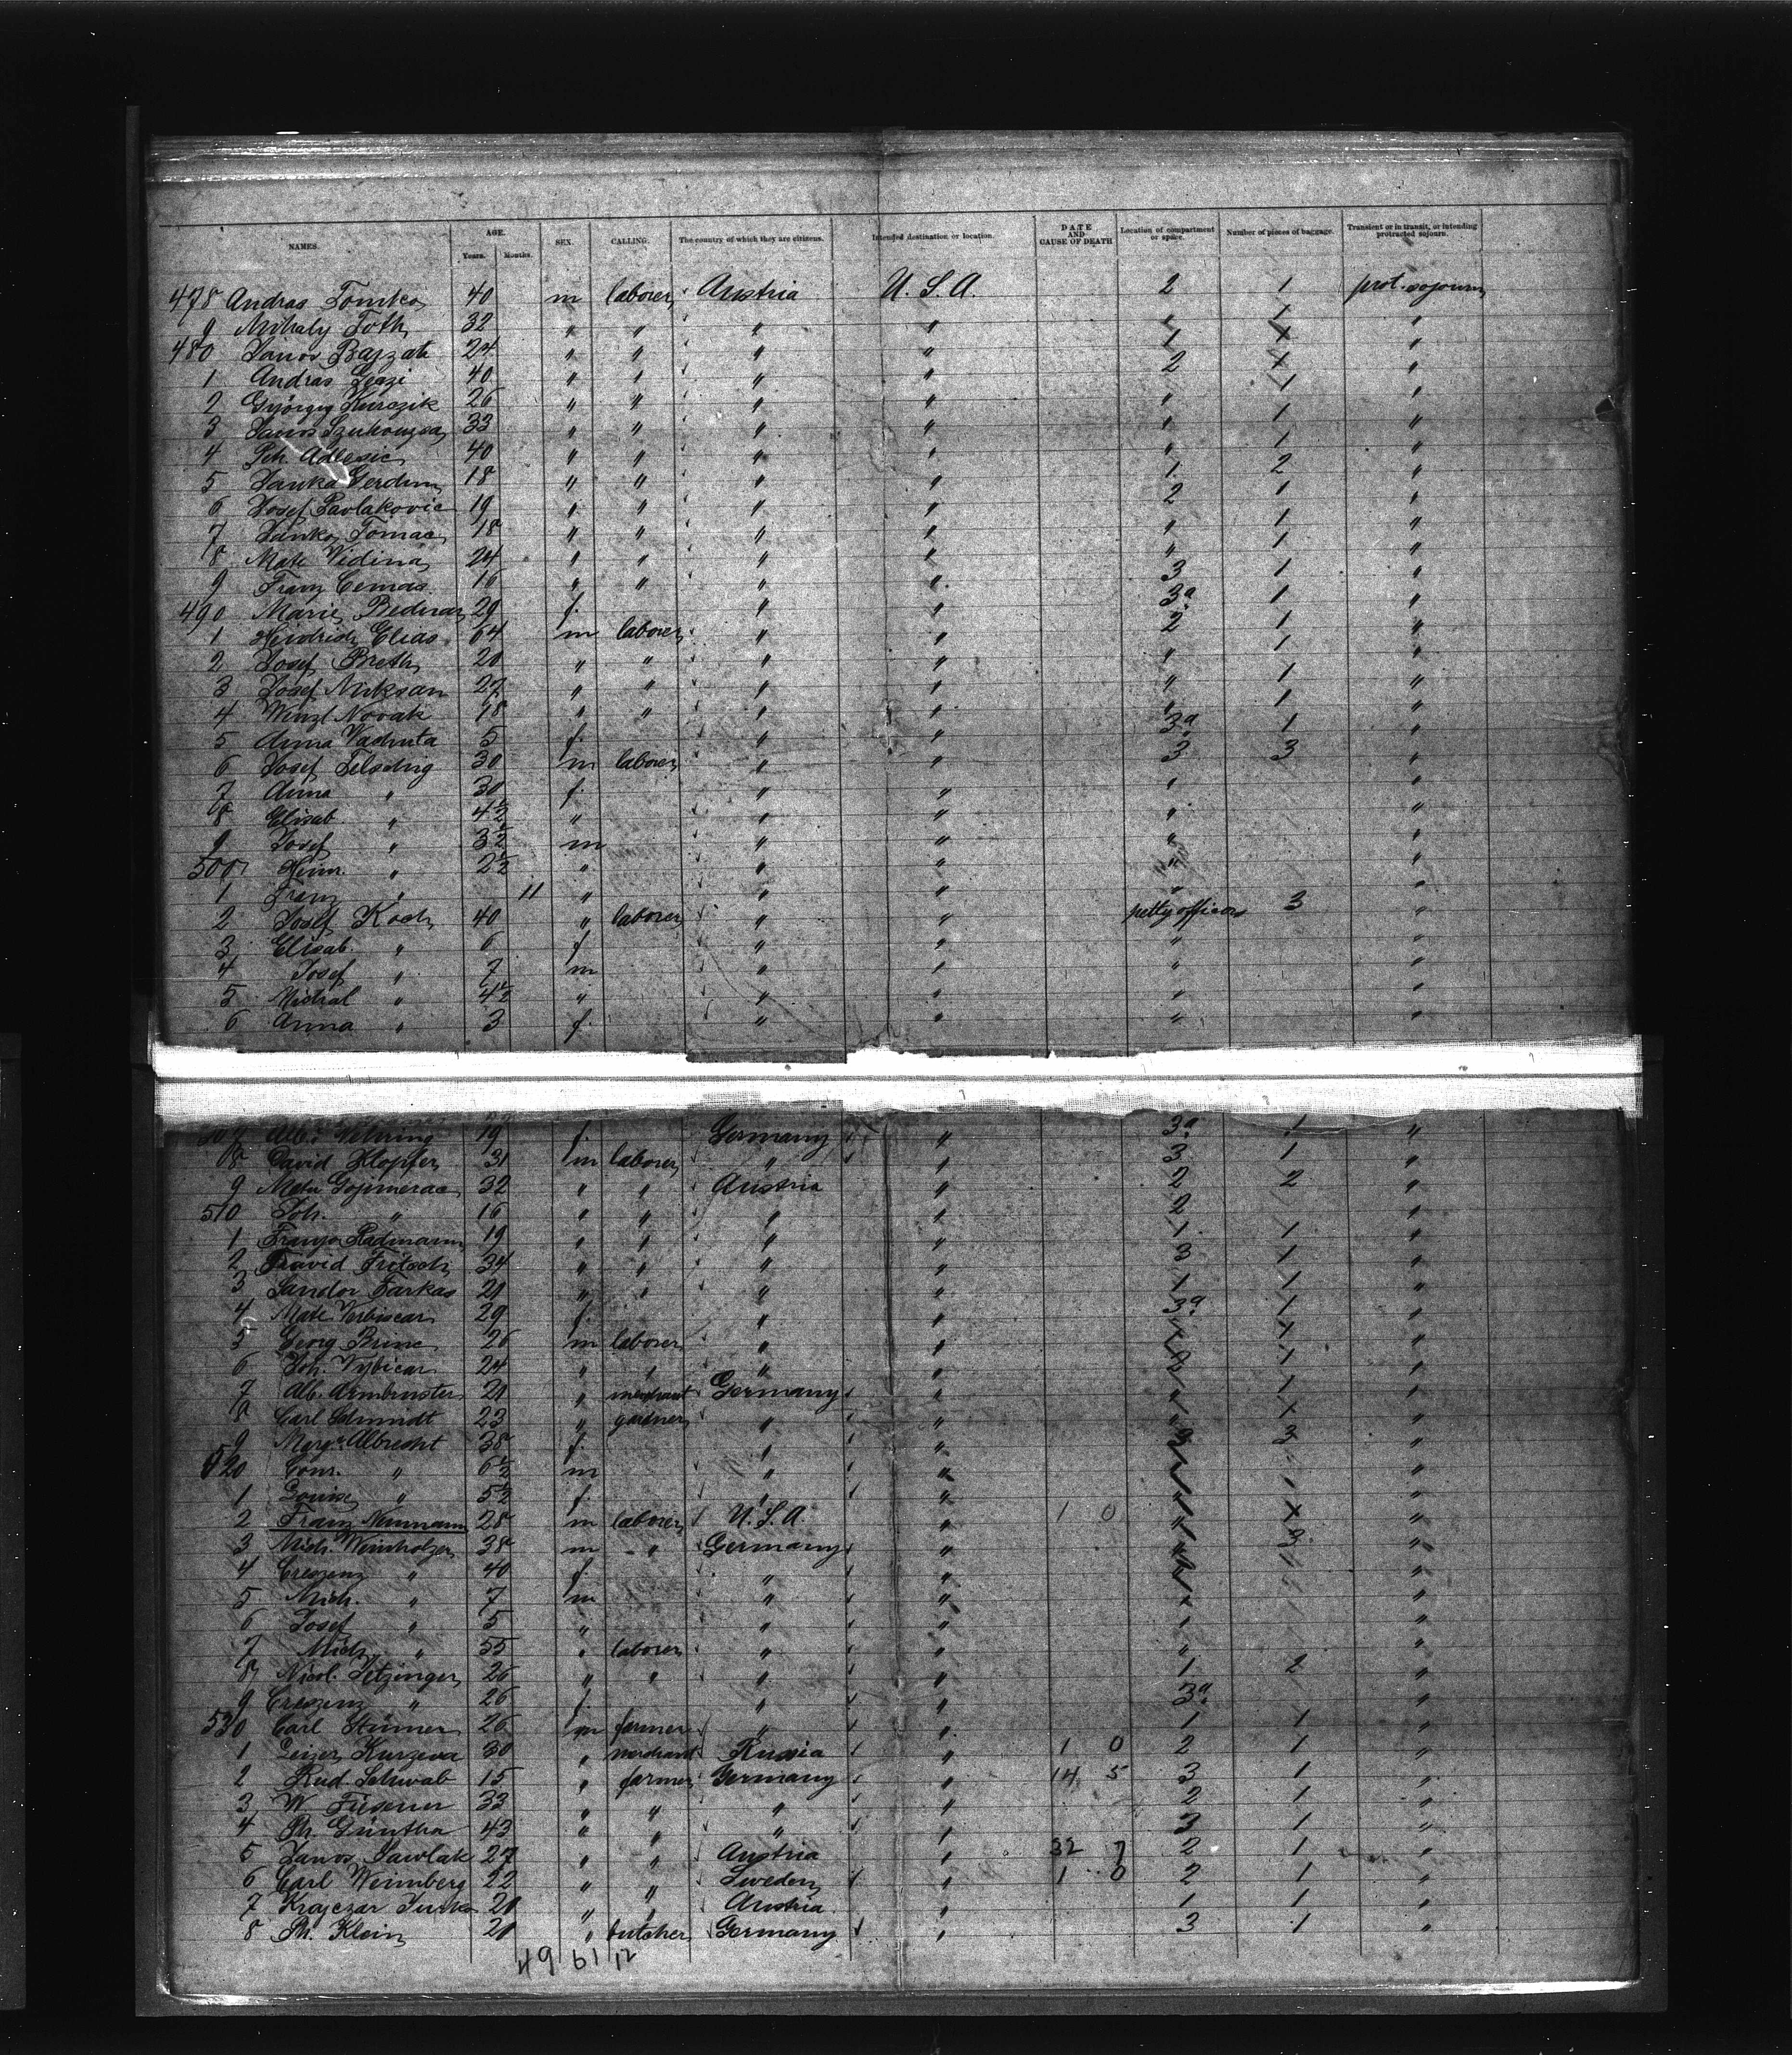 NAMES. AGE. Years. Months. SEX. CALLING. The country of which they are citizens. Intended destination or location. DATE AND CAUSE OF DEATH Location of compartment or space. Number of pieces of baggage. Transient or in transit, or intending protracted sojourn.
478 Andras Tomko 40 m laborer Austria U. S. A. 2 1 prot. sojourn
9 Mihaly Toth 32 " " " " " 1 "
480 Janos Bajzath 24 " " " " 1 "
1 Andras 40 " " " " 2 "
2 György Kurczik 26 " " " " " 1 "
3 Janos 33 " " " " " 1 "
4 Joh. Adlesic 40 " " " " " 1 "
5 Janko Gerdun 18 " " " " 1 2 "
6 Josef Pavlakovic 19 " " " " 2 1 "
7 Janko Tomac 18 " " " " " 1 "
8 Mate Vidina 24 " " " " " 1 "
9 Franz Cemas 16 " " " " 3 1 "
490 Marie Bednar 29 f. " " 3a 1 "
1 Heidrich Elias 64 m laborer " " 2 1 "
2 Josef Breth 20 " " " " " 1 "
3 Josef Mirksan 27 " " " " " 1 "
4 Wenzl Novak 18 " " " " " 1 "
5 Anna Vachuta 5 f. " " 3a 1 "
6 Josef 30 m laborer " " 3 3 "
7 Anna " 30 f. " " " "
8 Elisab " 4½ " " " " "
9 Josef " 3½ m " " " "
500 Heinr. " 2½ " " " " "
1 Franz " 11 " " " " "
2 Josef Koch 40 " laborer " " petty officers 3 "
3 Elisab. " 6 f " " " "
4 Josef " 7 m " " " "
5 Michal " 4½ " " " " "
6 Anna " 3 f. " " " "
19 f. Germany " 3a 1 "
08 David Klopfer 31 m laborer " " 3 1 "
9 Mate Gojmerac 32 " " Austria " 2 2 "
510 Joh. " 16 " " " " 2 "
1 Franjo Radmann 19 " " " " 1 1 "
2 David Fritsch 34 " " " " 3 1 "
3 Sandor Farkas 21 " " " " 1 1 "
4 Mate Verbiscar 29 f. " " 3a 1 "
5 Georg Brinc 26 m laborer " " "
6 Joh. Vybicar 24 " " " " 1 "
7 Alb. Armbruster 21 " merchant Germany " " 1 "
8 Carl Schmidt 23 " gardner " " " "
9 Marg. Albrecht 38 f. " " 3 "
520 Conr. " 6½ m " " "
1 Louise " 5½ f. " " " "
2 Franz Neumann 28 m laborer U. S. A. " 1 0 " "
3 Mich. Weinholzer 38 m " Germany " " 3 "
4 Creszenz " 40 f. " " "
5 Mich. " 7 m " " "
6 Josef " 5 " " " "
7 Mich. " 55 " laborer " " " "
8 Nicol. Sitzinger 26 " " " " 1 2 "
9 Creszenz " 26 f. " " 3a "
530 Carl Steiner 26 m farmer " " 1 1 "
1 Leizer Kurzewa 30 " merchant Russia " 1 0 2 1 "
2 Rud. Schwab 15 " farmer Germany " 14 5 3 1 "
3 W. Füsener 33 " " " " 2 1 "
4 Ph. Güntha 43 " " " " 3 1 "
5 Janos Pawlak 27 " " Austria " 32 7 2 1 "
6 Carl Wennberg 22 " " Sweden " 1 0 2 1 "
7 Krajczar Jurko 20 " " Austria " 1 1 "
8 Ph. Klein 21 " butcher Germany " 3 1 "
49 61 12